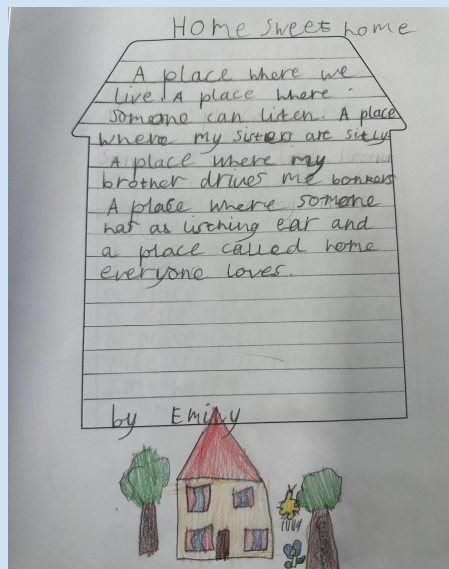 Home sweet home
A place where we
live. A place where
someone can listen. A place
where my sisters are silly
A place where my
brother drives me bonkers
A place where someone
has as listning ear and
a place called home
everyone loves.
by Emily